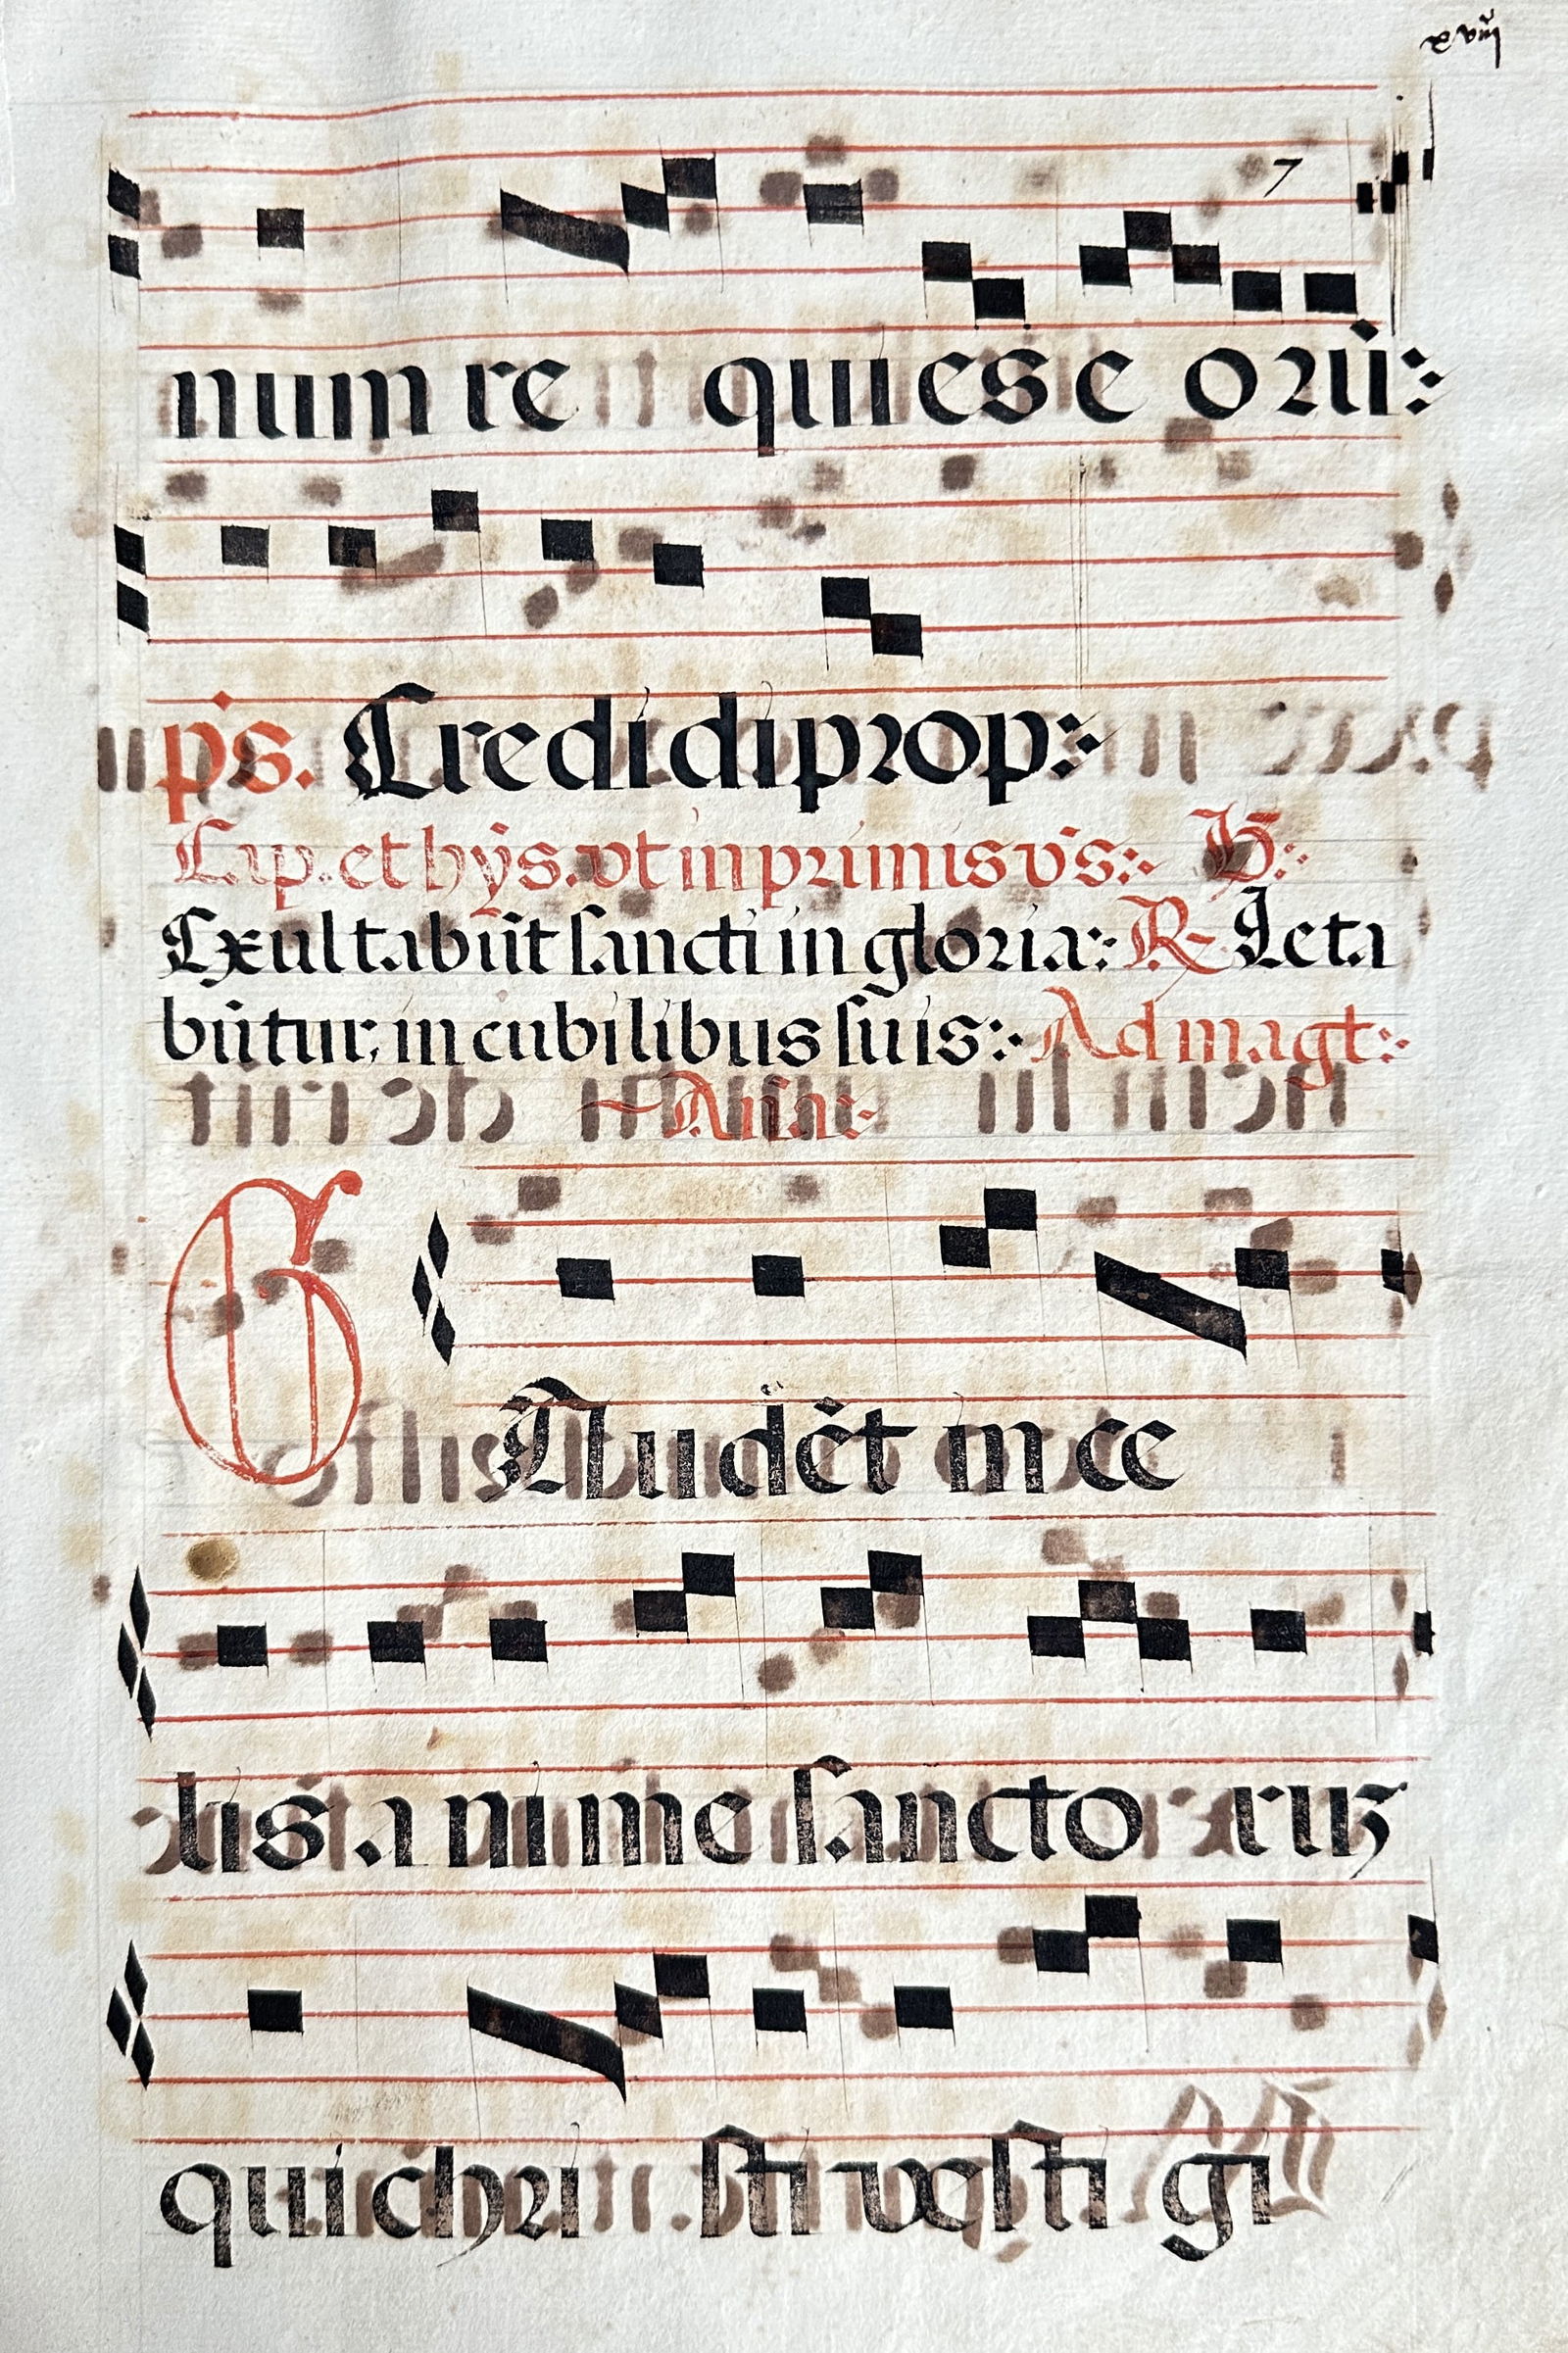 xviij
num re quiesc e orũ:
ps. Credidi prop:
Cap. et hỹs. vt in primis vs: ℣:
Exultabũt sancti in gloria: R Leta
bũtur, in cubilibus suis: Ad magt:
Aña:
GAudẽt in ce
lis animme sancto ruz
qui chri sti vesti gi